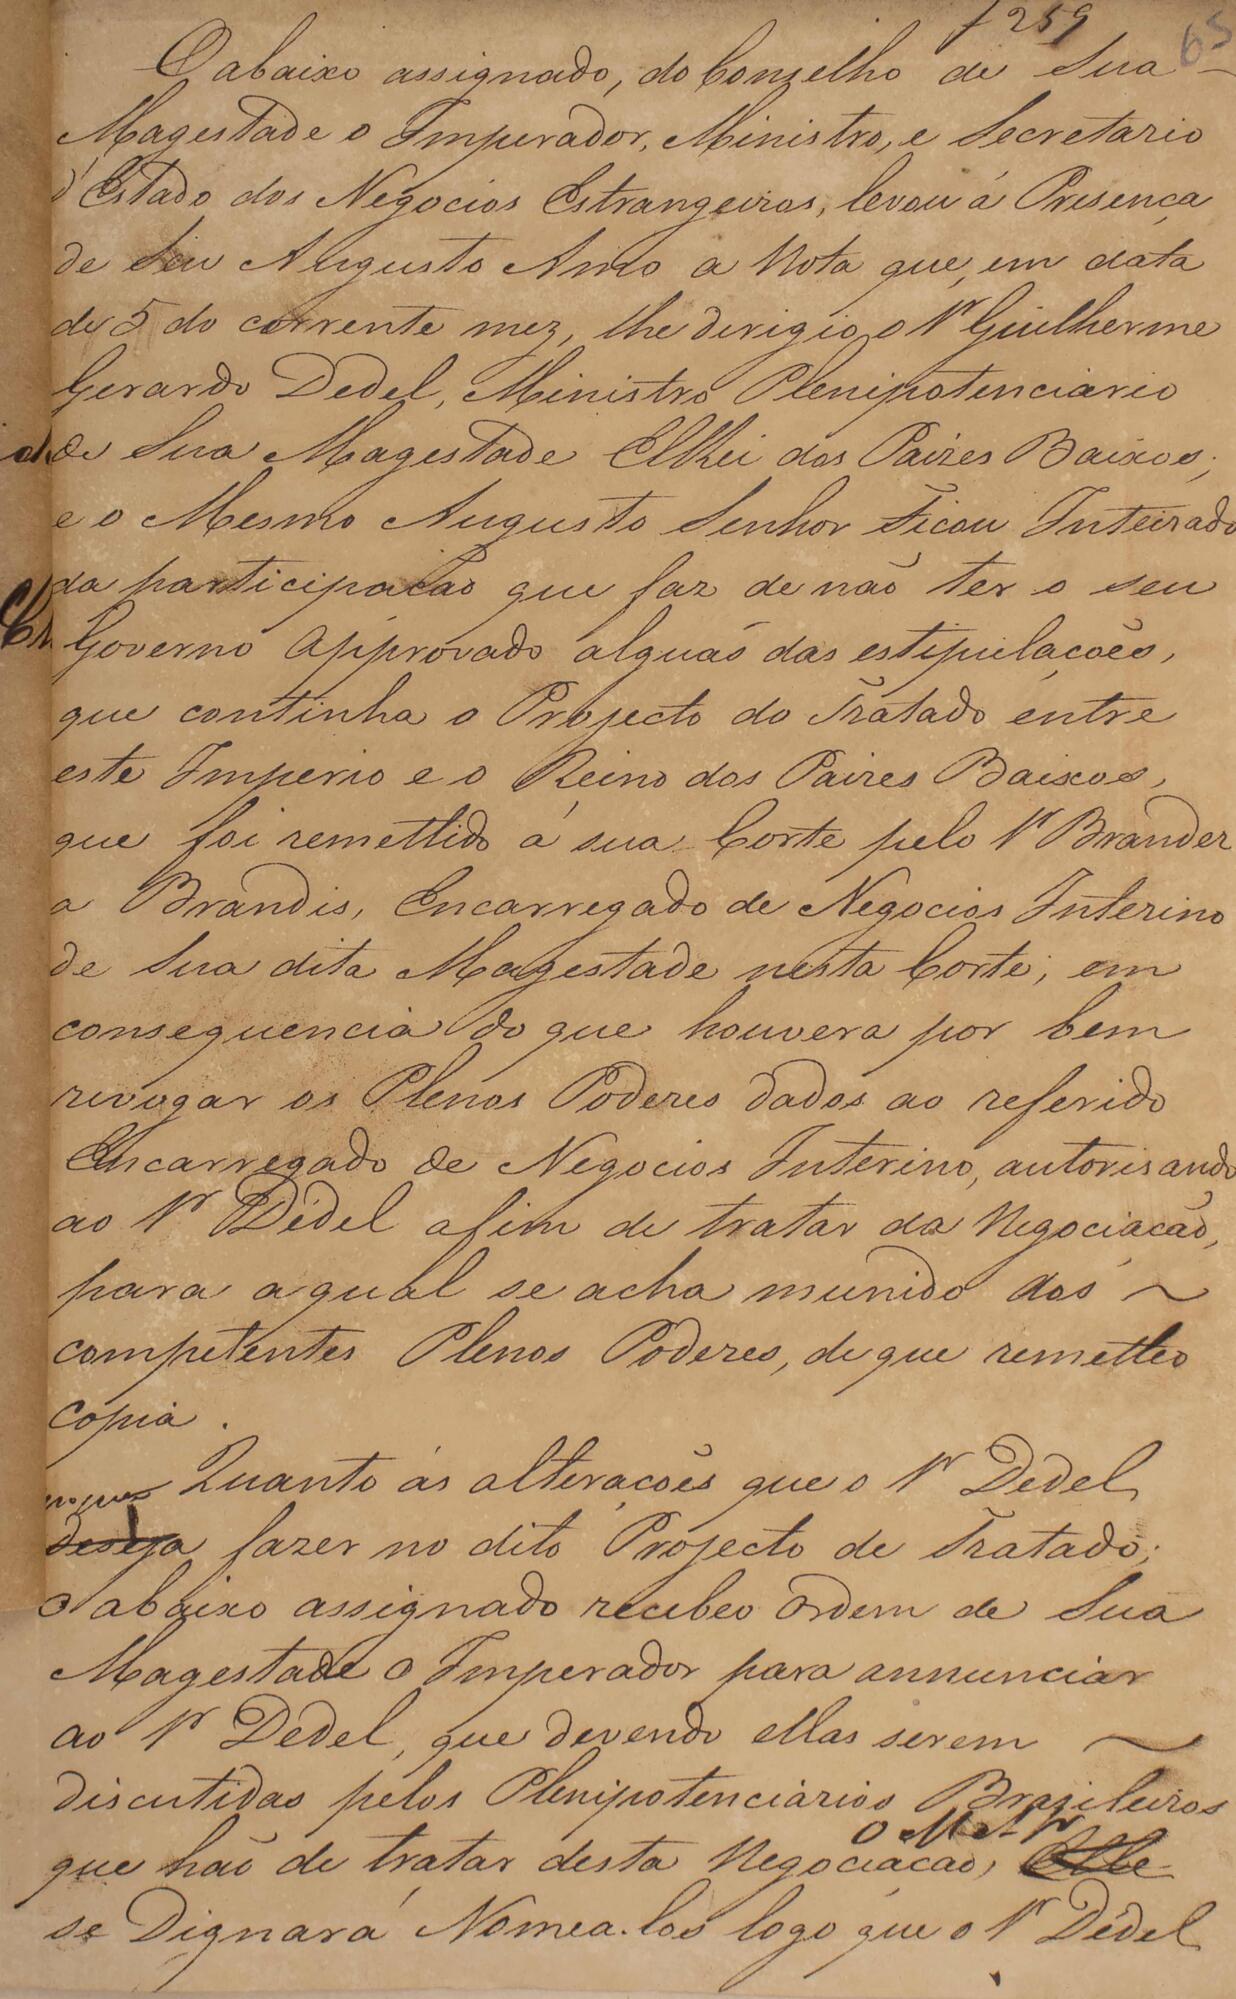 259
65
O abaixo assignado, do Conselho de Sua
Magestade o Imperador, Ministro, e Secretario
d'Estado dos Negocios Estrangeiros, levou á Presença
de Seu Augusto Amo a Nota que, em data
de 5 do corrente mez, lhe dirigio o Sr Guilherme
Gerardo Dedel, Ministro Plenipotenciario
de Sua Magestade ElRei dos Paizes Baixos;
e o Mesmo Augusto Senhor Ficou Inteirado
da participação que faz de não ter o seu
Governo Approvado alguãs das estipulacões,
que continha o Projecto do Tratado entre
este Imperio e o Reino dos Paizes Baixos,
que foi remettido á sua Corte pelo Sr Brander
a Brandis, Encarregado de Negocios Interino
de Sua dita Magestade nesta Corte; em
consequencia do que houvera por bem
revogar os Plenos Poderes dados ao referido
Encarregado de Negocios Interino, autorisando
ao Sr Dedel afim de tratar da Negociação,
para a qual se acha munido dos
competentes Plenos Poderes, de que remetteo
copia.
Quanto ás alterações que o Sr Dedel
deseja fazer no dito Projecto de Tratado;
o abaixo assignado recebeo Ordem de Sua
Magestade o Imperador para annunciar
ao Sr Dedel, que devendo ellas serem
discutidas pelos Plenipotenciarios Brazileiros
que hão de tratar desta Negociação, Elle
se Dignará Nomea-los logo que o Sr Dedel